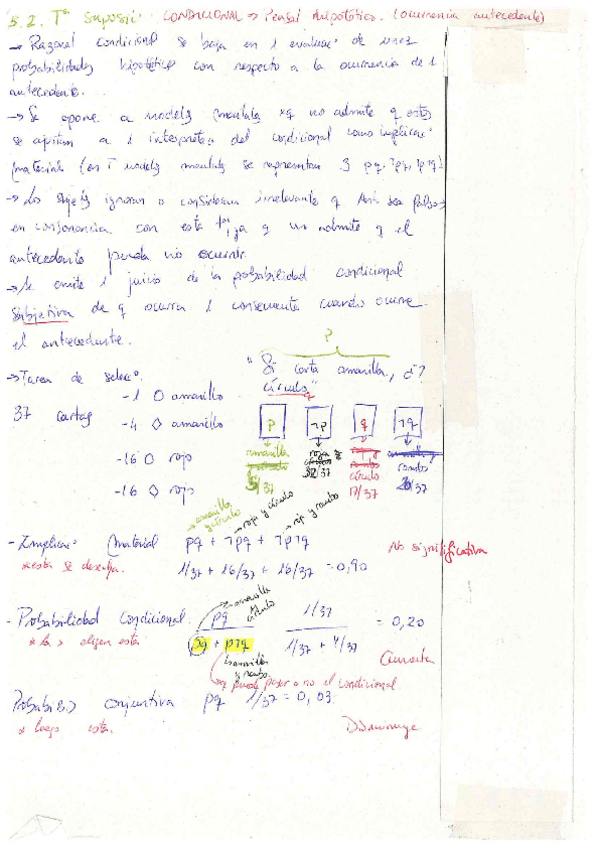 5.2. Tª Suposic: CONDICIONAL → Pensar hipotético. (ocurrencia antecedente)
→ Razonar condicional se basa en 1 evaluac° de unas
probabilidades hipotéticas con respecto a la ocurrencia de 1
antecedente.
→ Se opone a modelos mentales xq no admite q estos
se ajustan a 1 interpretac° del condicional como implicac°
material (en T modelos mentales se representan 3 pq, ¬pq, ¬p¬q)
→ Los sujetos ignoran o consideran irrelevante q Ant sea falso
en consonancia con esta tª, ya q no admite q el
antecedente pueda no ocurrir.
→ Se emite 1 juicio de la probabilidad condicional
subjetiva de q ocurra 1 consecuente cuando ocurre
el antecedente.
P
"Si carta amarilla, ¿?
círculo" q
→ Tarea de selecc°.
37 cartas
-1 O amarillo
-4 ◊ amarillo
-16 O rojo
-16 ◊ rojo
p ¬p q ¬q
amarilla
5/37
roja
32/37
círculo
17/37
rombos
20/37
→ amarilla y círculo
→ rojo y círculo
→ rojo y rombo
- Implicac° material pq + ¬pq + ¬p¬q
* esta se desecha. 1/37 + 16/37 + 16/37 = 0,90
No significativa
- Probabilidad condicional. pq / pq + p¬q
→ amarilla y círculo
1/37 / 1/37 + 4/37 = 0,20
* la > eligen esta
amarilla y rombo
Aumenta
→ q puede pasar o no el condicional
Probabi(.) conjuntiva pq 1/37 = 0,03
* luego esta.
Disminuye